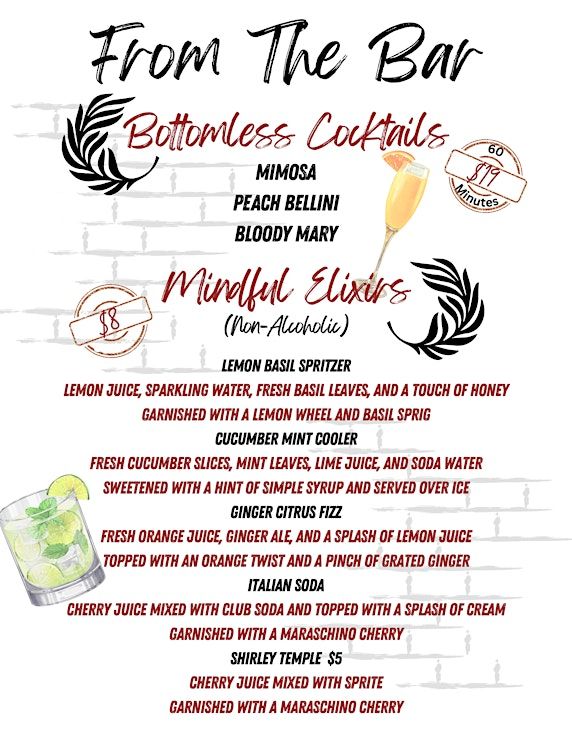 From The Bar
Bottomless Cocktails
60
$19
Minutes
MIMOSA
PEACH BELLINI
BLOODY MARY
Mindful Elixirs
$8
(Non-Alcoholic)
LEMON BASIL SPRITZER
LEMON JUICE, SPARKLING WATER, FRESH BASIL LEAVES, AND A TOUCH OF HONEY
GARNISHED WITH A LEMON WHEEL AND BASIL SPRIG
CUCUMBER MINT COOLER
FRESH CUCUMBER SLICES, MINT LEAVES, LIME JUICE, AND SODA WATER
SWEETENED WITH A HINT OF SIMPLE SYRUP AND SERVED OVER ICE
GINGER CITRUS FIZZ
FRESH ORANGE JUICE, GINGER ALE, AND A SPLASH OF LEMON JUICE
TOPPED WITH AN ORANGE TWIST AND A PINCH OF GRATED GINGER
ITALIAN SODA
CHERRY JUICE MIXED WITH CLUB SODA AND TOPPED WITH A SPLASH OF CREAM
GARNISHED WITH A MARASCHINO CHERRY
SHIRLEY TEMPLE $5
CHERRY JUICE MIXED WITH SPRITE
GARNISHED WITH A MARASCHINO CHERRY